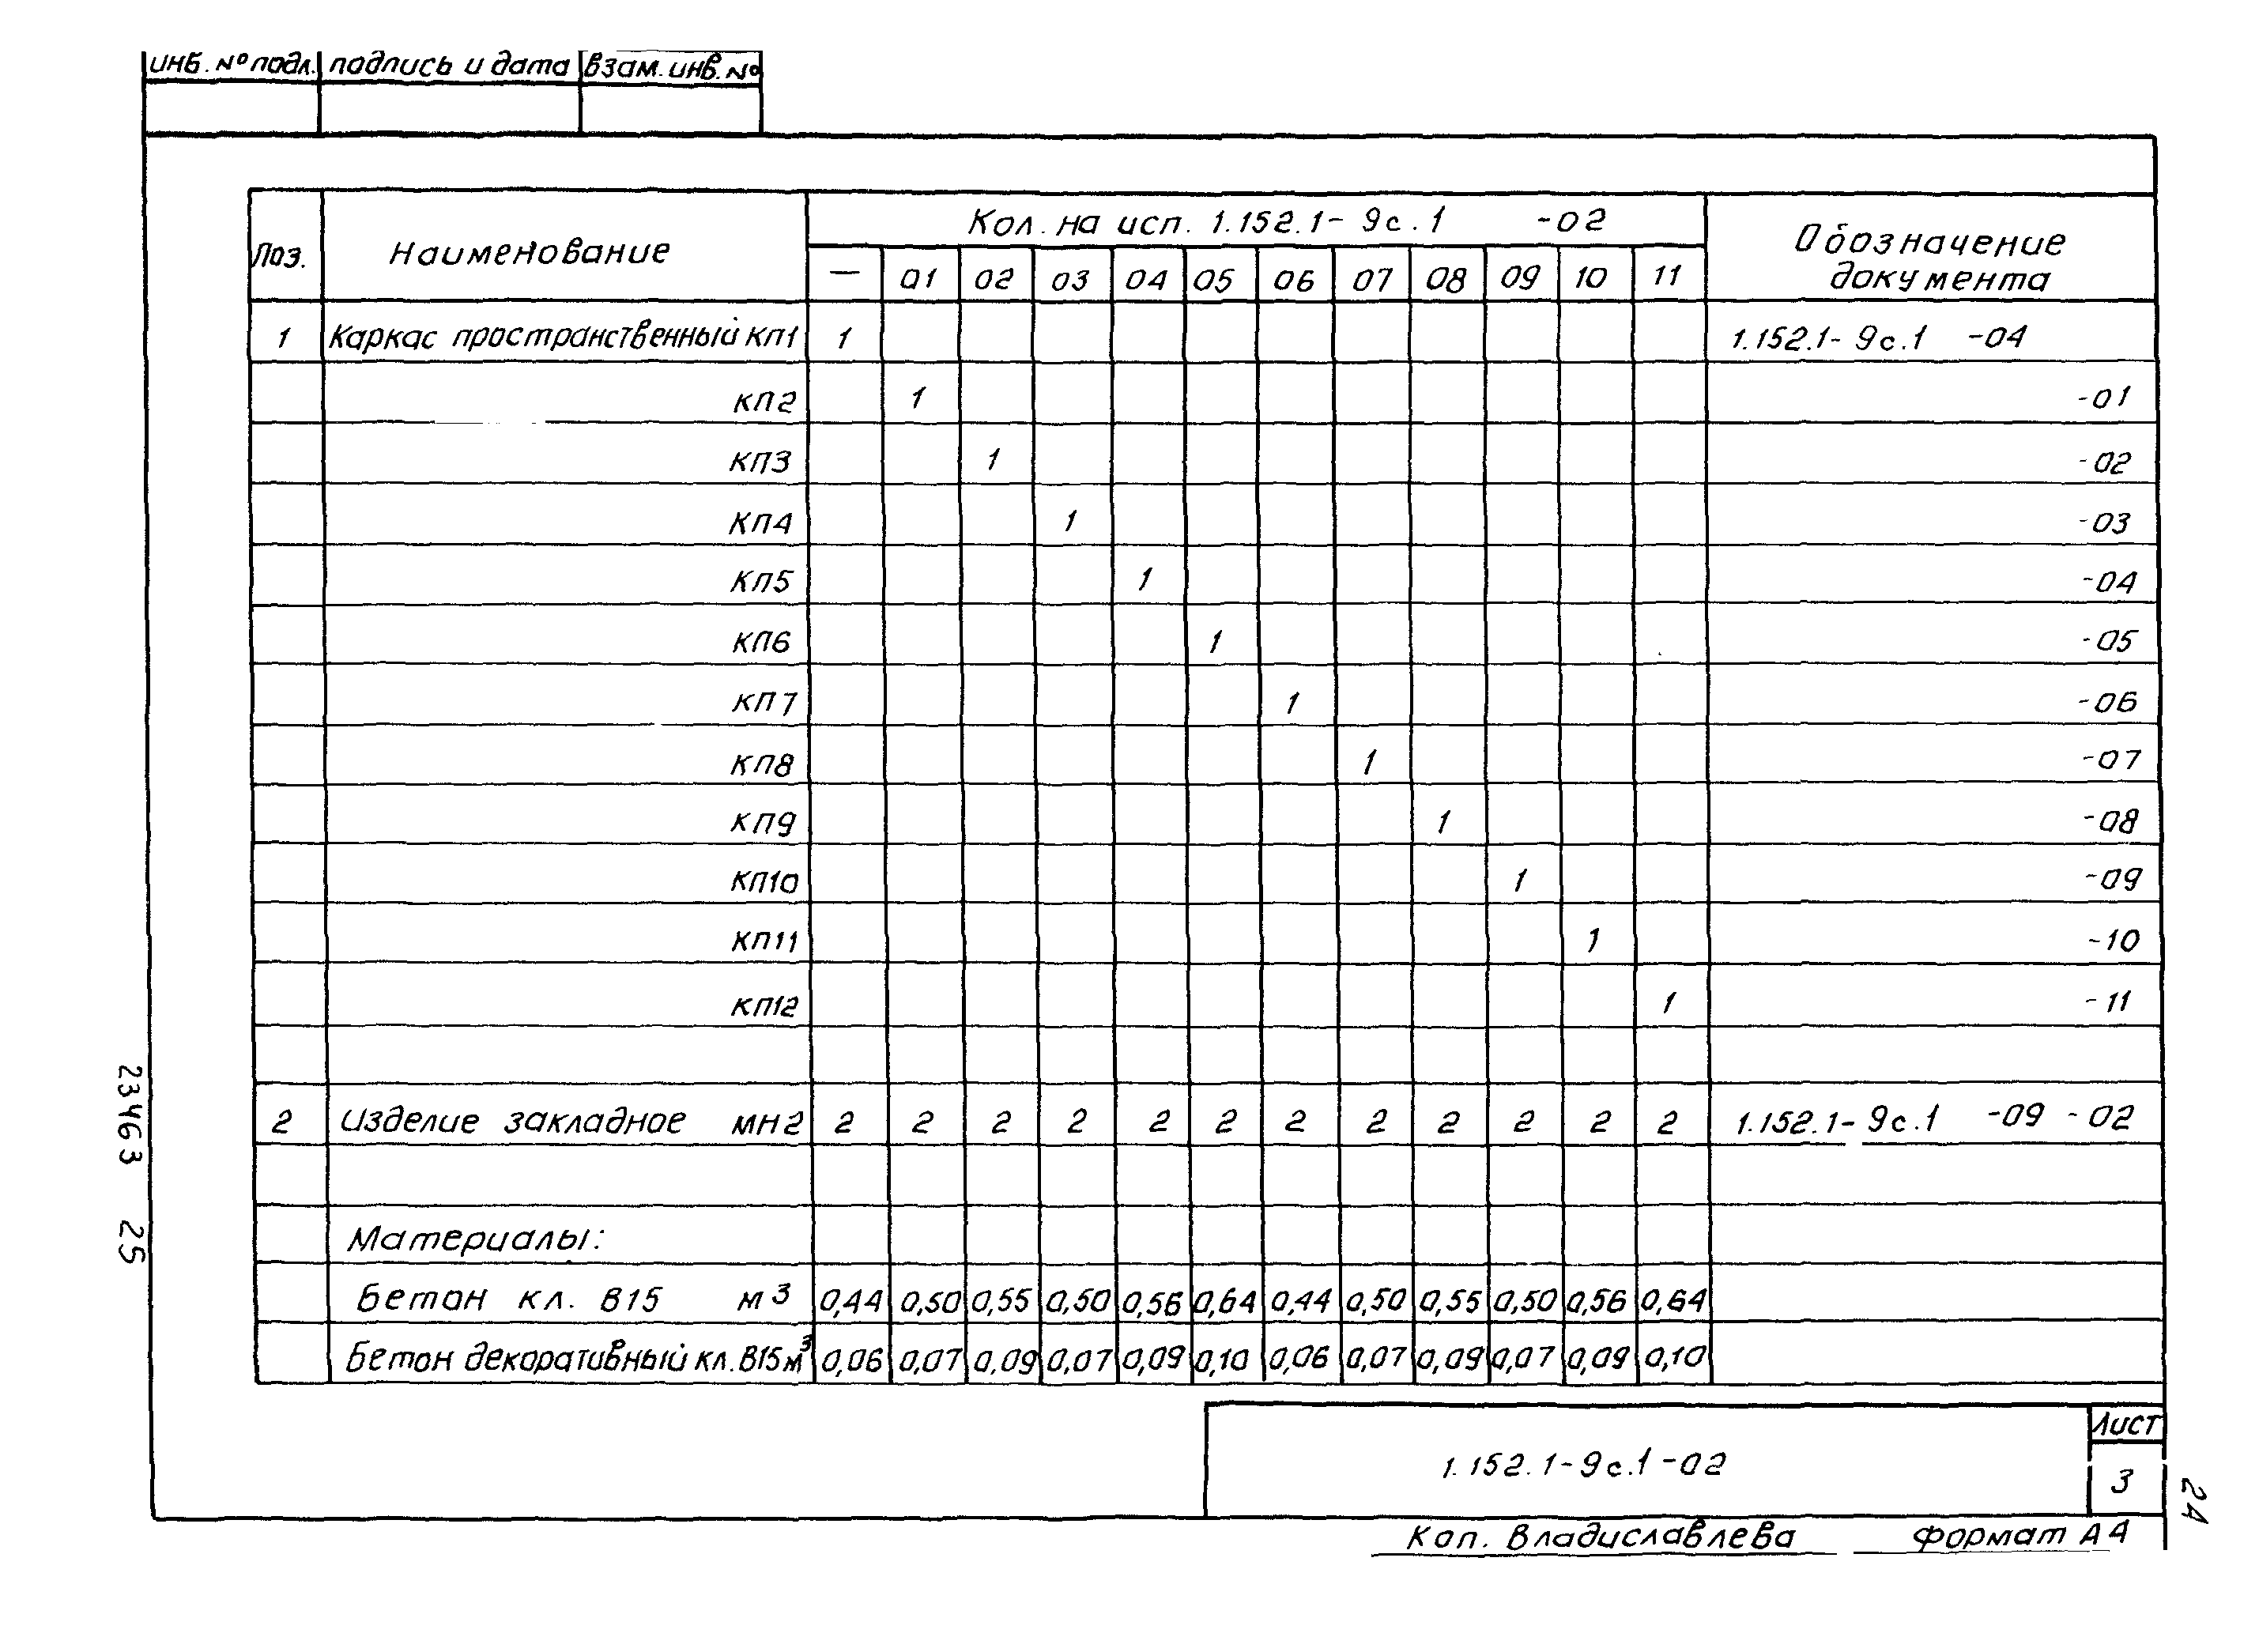 инв. № подл. подпись и дата взам. инв. №
Поз. Наименование Кол. на исп. 1.152.1- 9с.1 -02 Обозначение документа
— 01 02 03 04 05 06 07 08 09 10 11
1 Каркас пространственный КП1 1 1.152.1- 9с.1 -04
КП2 1 -01
КП3 1 -02
КП4 1 -03
КП5 1 -04
КП6 1 -05
КП7 1 -06
КП8 1 -07
КП9 1 -08
КП10 1 -09
КП11 1 -10
КП12 1 -11
2 Изделие закладное МН2 2 2 2 2 2 2 2 2 2 2 2 2 1.152.1- 9с.1 -09 - 02
Материалы:
Бетон кл. В15 м3 0,44 0,50 0,55 0,50 0,56 0,64 0,44 0,50 0,55 0,50 0,56 0,64
Бетон декоративный кл. В15 м3 0,06 0,07 0,09 0,07 0,09 0,10 0,06 0,07 0,09 0,07 0,09 0,10
23463 25
1.152.1-9с.1-02
Лист
3
24
Коп. Владиславлева Формат А4